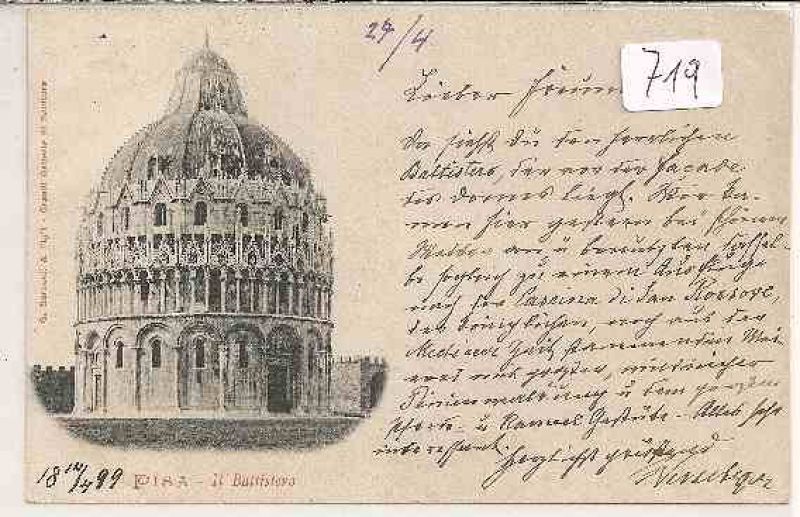 29/4
719
Lieber Freun
Da siehst du den herrlichen
Battistero, der vor der Façade
des Domes liegt. Wir ka-
men hier gestern bei schönem
Wetter an u benützten dassel-
be sogleich zu einem Ausfluge
nach der Cascina di San Rossore,
der königlichen, noch aus der
Mediceer Zeit stammenden
u dem großen
u Kameel Gestüte. Alles sehr
interessant.
Herzlichst grüßend
18 12/4 99
PISA - Il Battistero